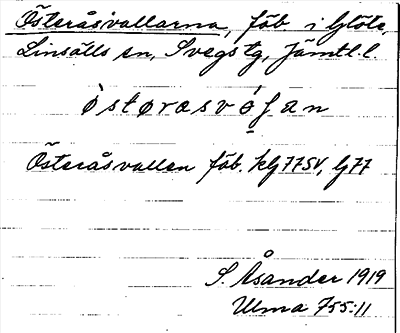 Österåsvallarna, fäb i Glöte,
Linsälls sn, Svegs tg, Jämtl. l.
østørasvó̱fan
Österåsvallen fäb. kg 77 SV, G 77
S. Åsander 1919
Ulma 755:11